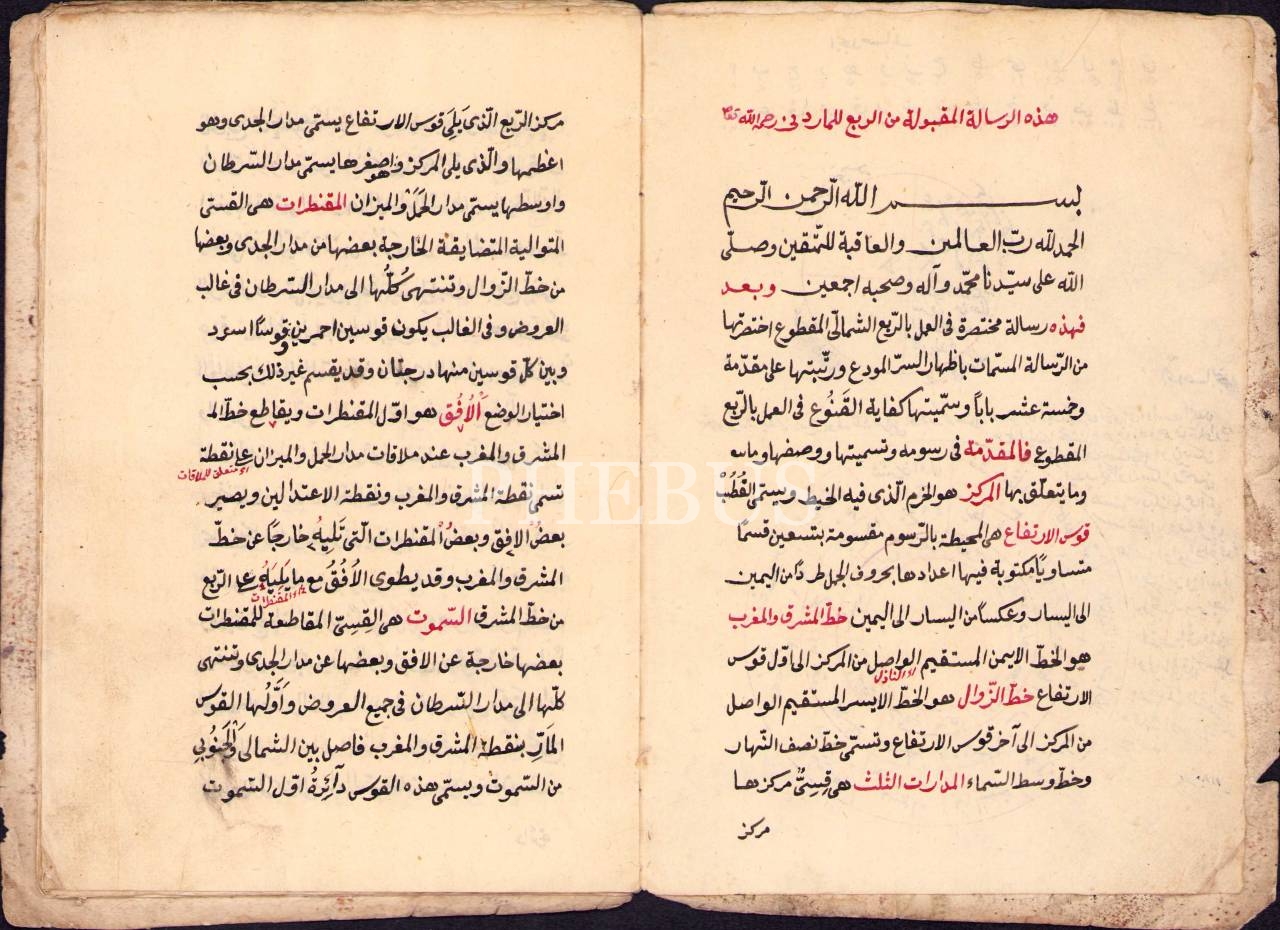 هذه الرسالة المقبولة من الربع للماردنى رحمه الله تعا
بسم الله الرّحمن الرّحيم
الحمد لله ربّ العالمين والعاقبة للمتّقين وصلّى
الله على سيّدنا محمّد وآله وصحبه اجمعين وبعد
فهذه رسالة مختصرة فى العمل بالرّبع الشمالىّ المقطوع اختصرتها
من الرّسالة المسمّات باظهار السرّ المودع ورتّبتها على مقدّمة
وخمسة عشر باباً وسمّيتها كفاية القَنُوع فى العمل بالرّبع
المقطوع فالمقدّمة فى رسومه وتسميتها ووصفها وما
وما يتعلّق بها المركز هو الخرم الّذى فيه الخيط ويسمّى القُطُبْ
قوس الارتفاع هى المحيطة بالرّسوم مقسومة بتسعين قسمًا
متساويًا مكتوبة فيها اعدادها بحروف الجمل طردًا من اليمين
الى اليسار وعكساً من اليسار الى اليمين خطّ المشرق والمغرب
هو الخطّ الايمن المستقيم الواصل من المركز الى اوّل قوس
الارتفاع خطّ الزّوال هو الخطّ الايسر المستقيم الواصل
من المركز الى آخر قوس الارتفاع وتسمّى خطّ نصف النّهار
وخطّ وسط السّماء المدارات الثلث هى قِسِىٌّ مركزها
مركز
مركز الرّبع الّذى يَلِى قوس الارتفاع يسمّى مدار الجدى وهو
اعظمها والّذى يلى المركز وهو اصغرها يسمّى مدار السّرطان
واوسطها يسمّى مدار الحمَل والميزان المقنطرات هى القسىّ
المتوالية المتضايقة الخارجة بعضها من مدار الجدى وبعضها
من خطّ الزّوال وتنتهى كُلُّها الى مدار السّرطان فى غالب
العروض وفى الغالب يكون قوسين احمرين وقوسًا اسود
وبين كلّ قوسين منها درجتان وقد يقسم غير ذلك بحسب
اختيار الوضع اَلاُفُق هو اوّل المقنطرات ويقاطع خطّ الـ
المشرق والمغرب عند ملاقات مدار الحمل والميزان على نقطة
متعلّق للملاقات
تسمى نقطة المشرق والمغرب ونقطة الاعتدالين ويصير
بعض الافق وبعضُ المقنطرات الّتى تَلِيهِ خارجًا عن خطّ
المشرق والمغرب وقد يطوى الاُفُقُ مع ما يَلِيَهُ على الرّبع
من المقنطرات
من خطّ المشرق السّموت هى القِسِىّ المقاطعة للمقنطرات
بعضها خارجة عن الافق وبعضها عن مدار الجدى وتنتهى
كلّها الى مدار السّرطان فى جميع العروض واَوَّلُها القوس
المَارّ بنقطة المشرق والمغرب فاصل بين الشمالى والجَنُوبِي
من السّموت ويسمّى هذه القوس دَآئِرةُ اوّل السّموت
PHEBUS